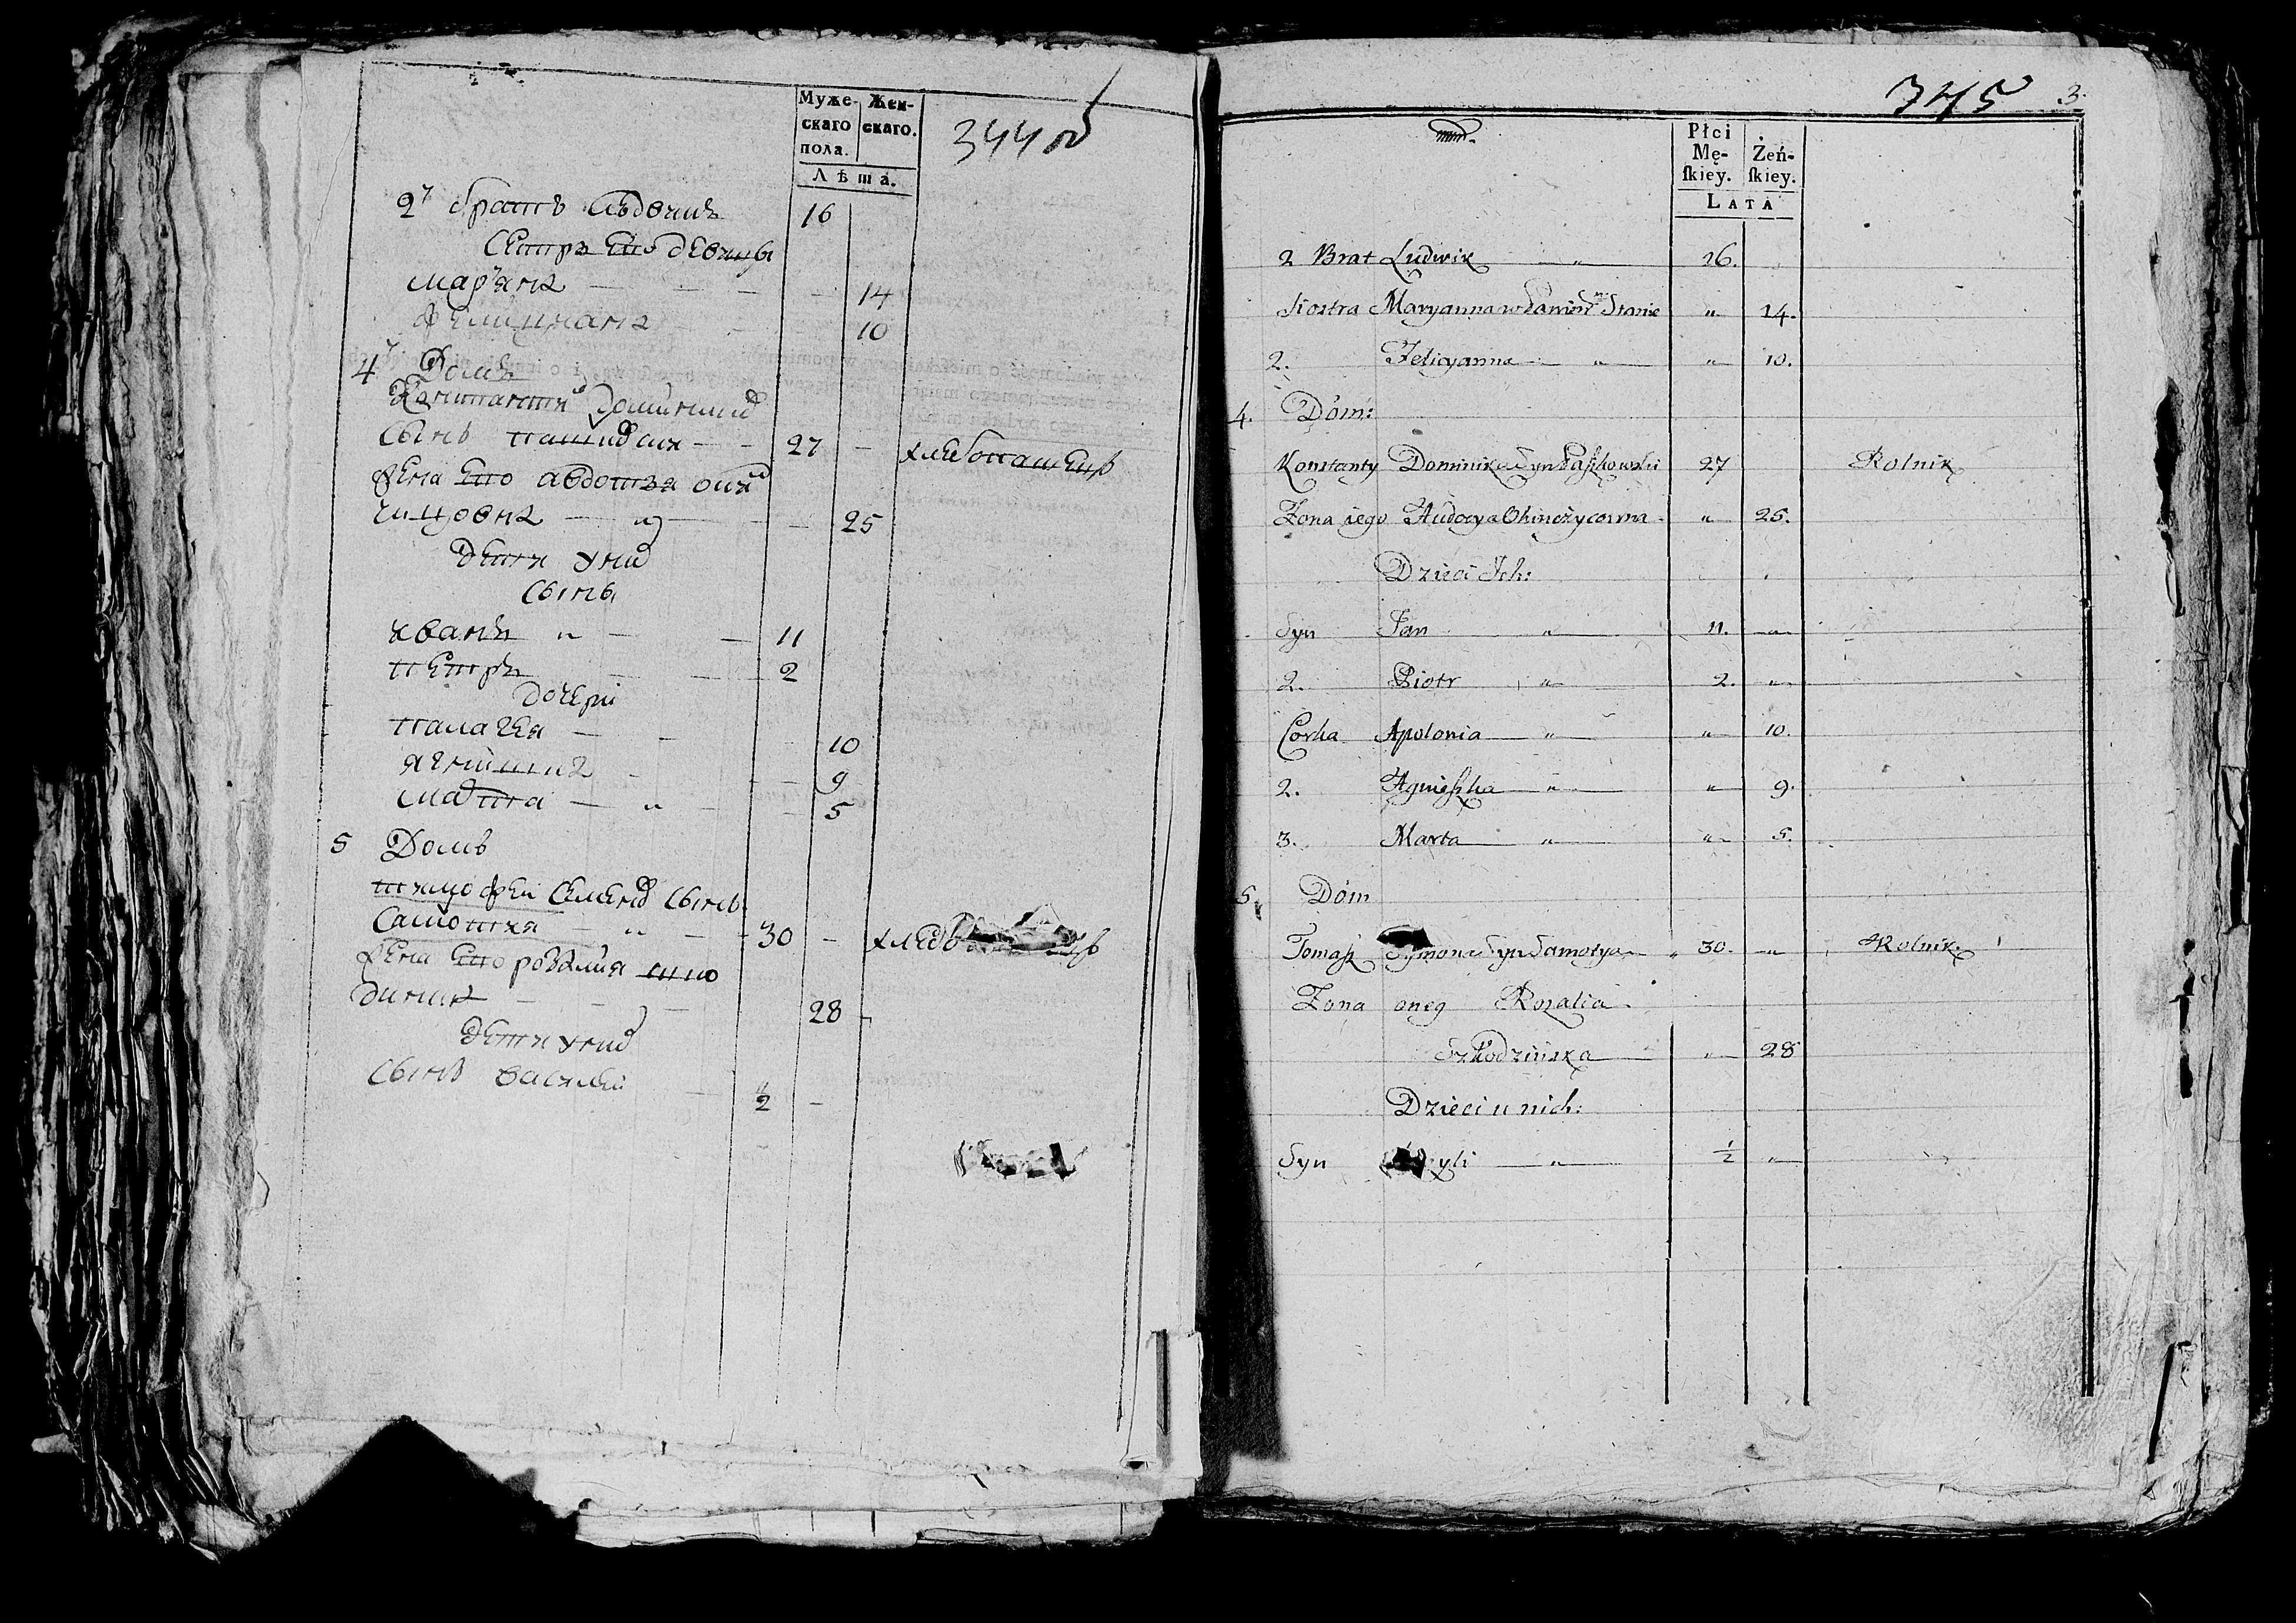 Муже- Жен-
скаго скаго.
пола.
Лѣта.
344 об
2й братъ Людвикъ 16
Сестръ Его девицы
марʼяна 14
Фелицияна 10
4й Домъ
Константий Доминика
Сынъ 27 хлебопашецъ
жена Его авдотья
25
дети у них
Сыны
иванъ 11
петръ 2
дочери
палагея 10
ягнишка 9
марта 5
5 Домъ
тимофей Семена Сынъ
Самотия 30
жена Его розалия
28
дети у них
Сынъ василий ½
345 3.
Płci
Mę- Żeń-
ſkiey. ſkiey.
LATA
2 Brat Ludwik " 16.
Siostra Maryanna w Stanie " 14.
2. Felicyanna " " 10.
4. Dóm:
Konstanty Dominika Syn Paſzkowski 27 Rolnik
Zona iego Audocya " 25.
Dzieci Ich:
Syn Jan " 11. "
2. Piotr " 2. "
Corka Apolonia " " 10.
2. Agnieſzka " " 9.
3. Marta " " 5.
5. Dóm
Tomaſz Symona Syn Samotya " 30. " Rolnik
Zona oneg Rozalia
Szkodzińska " 28
Dzieci u nich:
Syn yli " ½ "